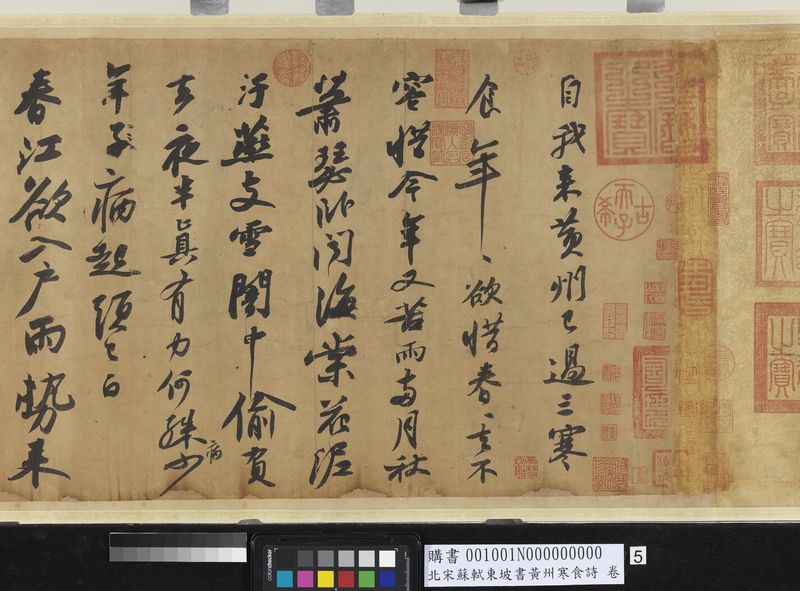 自我來黃州已過三寒
食年〻欲惜春〻去不
容惜今年又苦雨兩月秋
蕭瑟臥聞海棠花泥
汙燕支雪闇中偷負
去夜半真有力何殊病少
年子病起頭已白
春江欲入戶雨勢來
古希天子
之寶
之寶
colorchecker
購書 001001N000000000
北宋蘇軾東坡書黃州寒食詩 卷
5